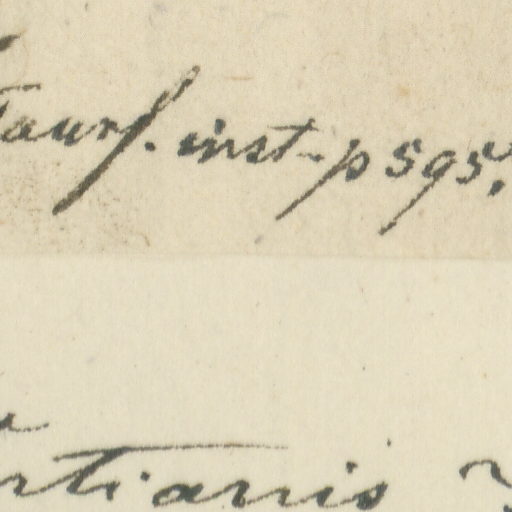 Tourf. inst. p 595.
rtianis